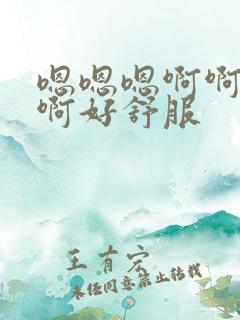 嗯嗯嗯啊啊
啊好舒服
王有宏
未经同意禁止转载